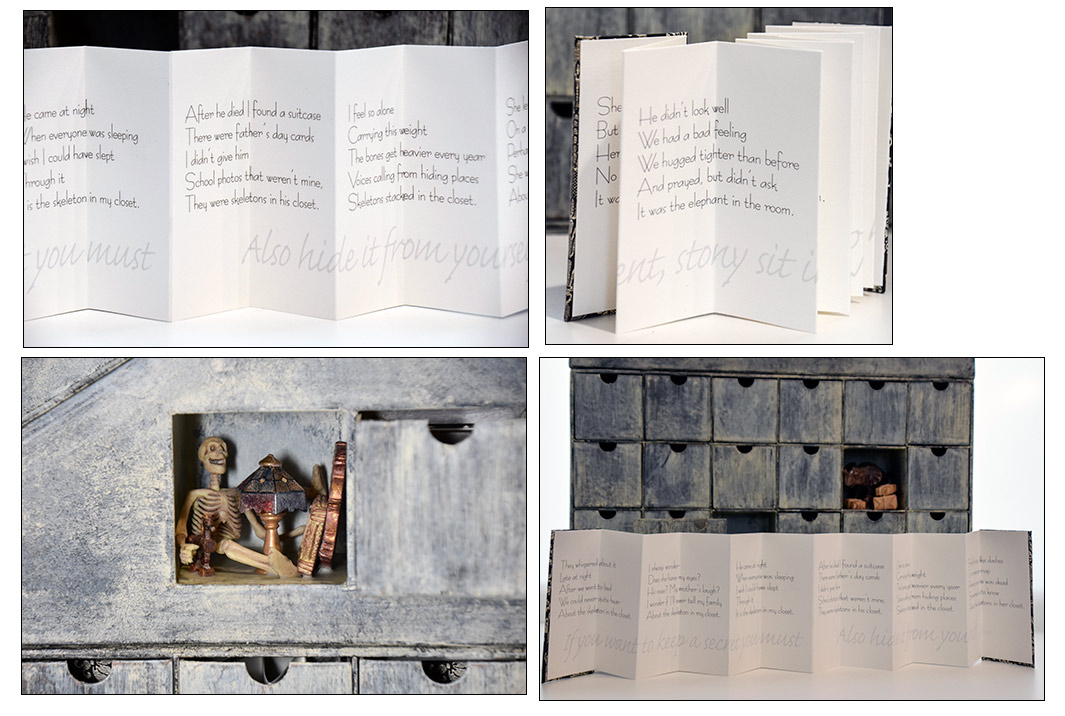 came at night
When everyone was sleeping
wish I could have slept
through it
is the skeleton in my closet.
you must
After he died I found a suitcase
There were father's day cards
I didn't give him
School photos that weren't mine,
They were skeletons in his closet.
I feel so alone
Carrying this weight
The bones get heavier every year
Voices calling from hiding places
Skeletons stacked in the closet.
Also hide it from yourse
She
But
Her
No
It wa
He didn't look well
We had a bad feeling
We hugged tighter than before
And prayed, but didn't ask
It was the elephant in the room.
ent, stony sit i
They whispered about it
Late at night
After we went to bed
We could never
About the skeleton in the closet.
I sleep
Does he have my eyes?
His nose? My mother's laugh?
I wonder if I'll ever tell my family
About the skeleton in my closet.
He came at night
When everyone was sleeping
I wish I could have slept
Through it
the skeleton in my closet.
After he died I found a suitcase
There were father's day cards
I didn't give him
School photos that weren't mine,
They were skeletons in his closet.
If you want to keep a secret you must
Also hide from you